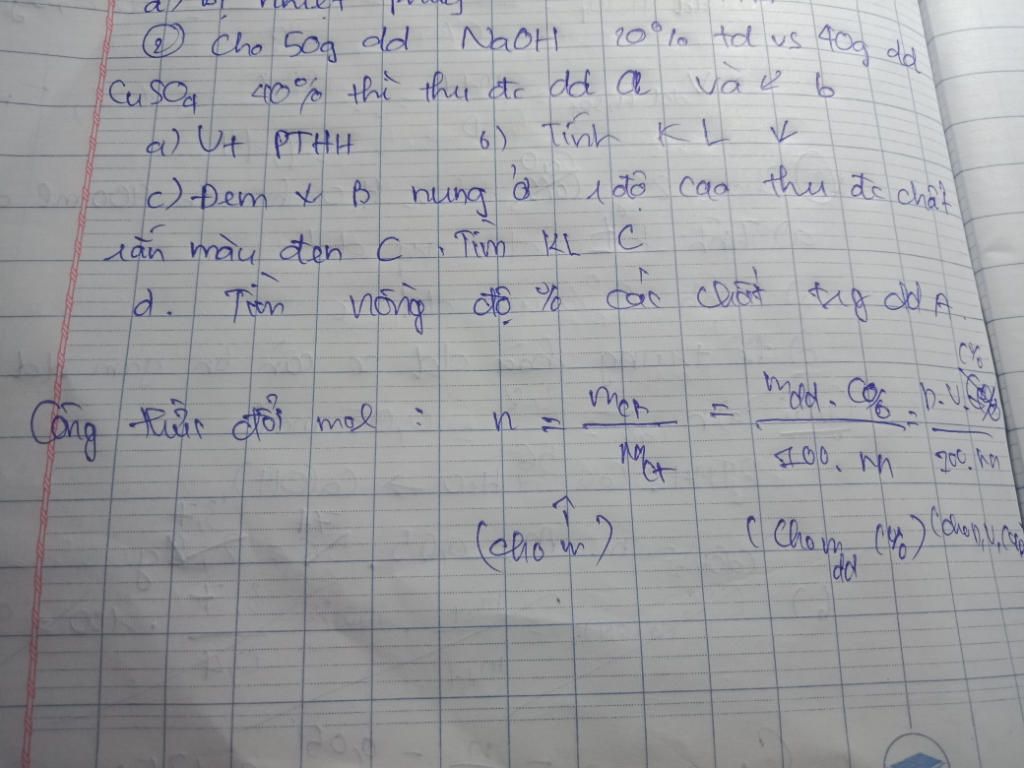 ② Cho 50g dd NaOH 20% td vs 40g dd
CuSO4 40% thì thu đc dd A và ↓ b
a) Vt PTHH b) Tính KL ↓
c) Đem ↓ B nung ở t độ cao thu đc chất
rắn màu đen C. Tìm KL C
d. Tìm nồng độ % các chất trg dd A.
Công thức đổi mol : n = mct / Mct = mdd . C% / 100 . M = D.V.C% / 100.M
(cho m) (Cho mdd C%) (cho D,V,C%)